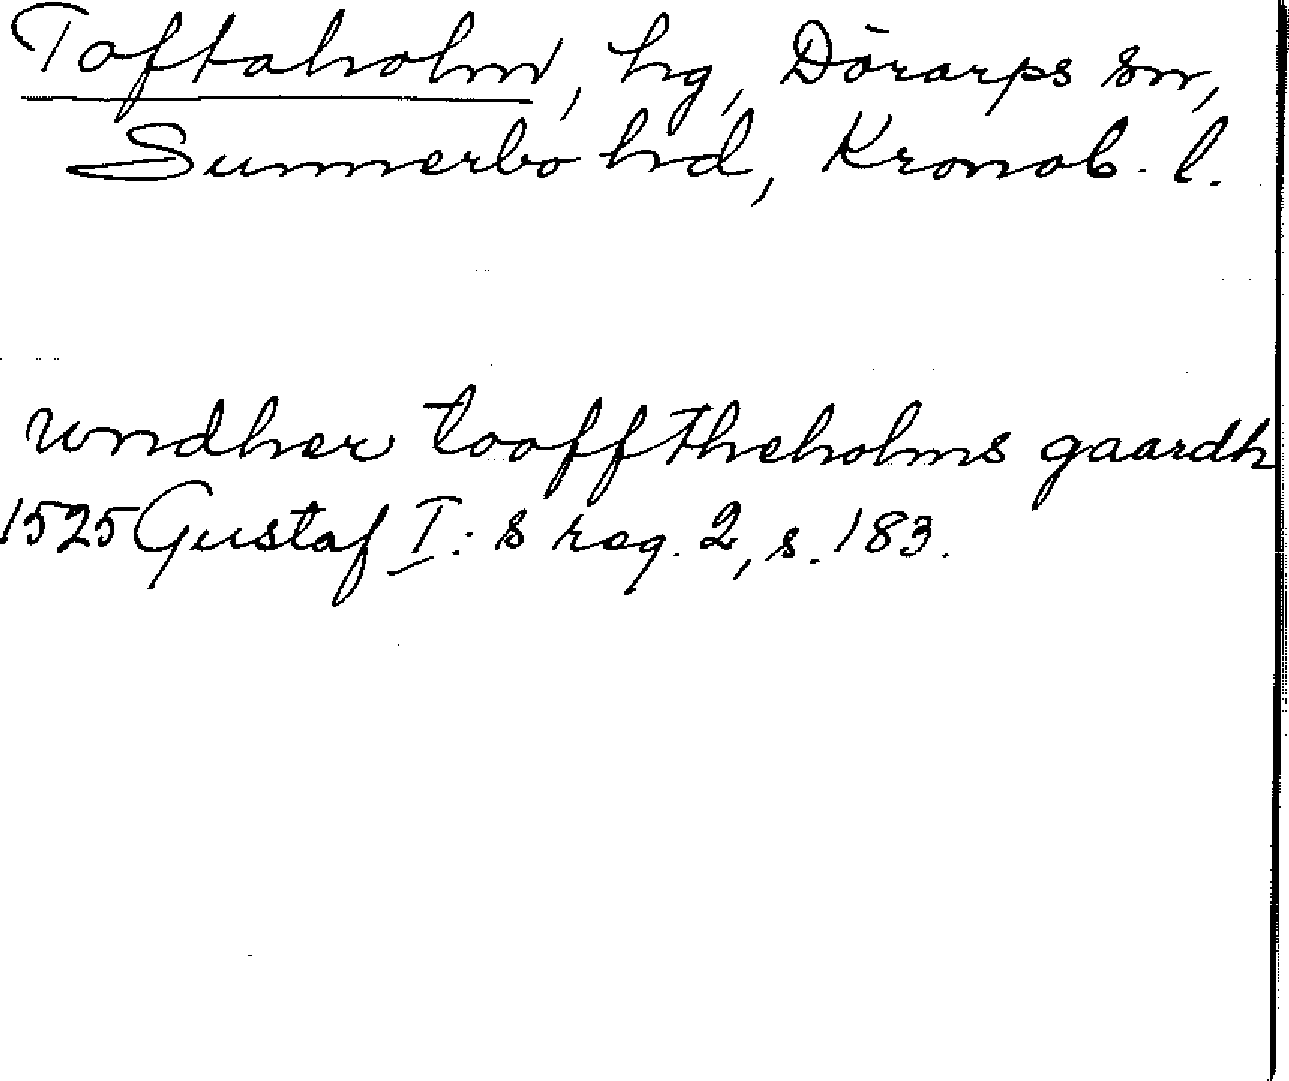 Toftaholm, hg, Dörarps sn,
Sunnerbo hd, Kronob. l.
wndher toofftheholms gaardh
1525 Gustaf I:s reg. 2, s. 183.